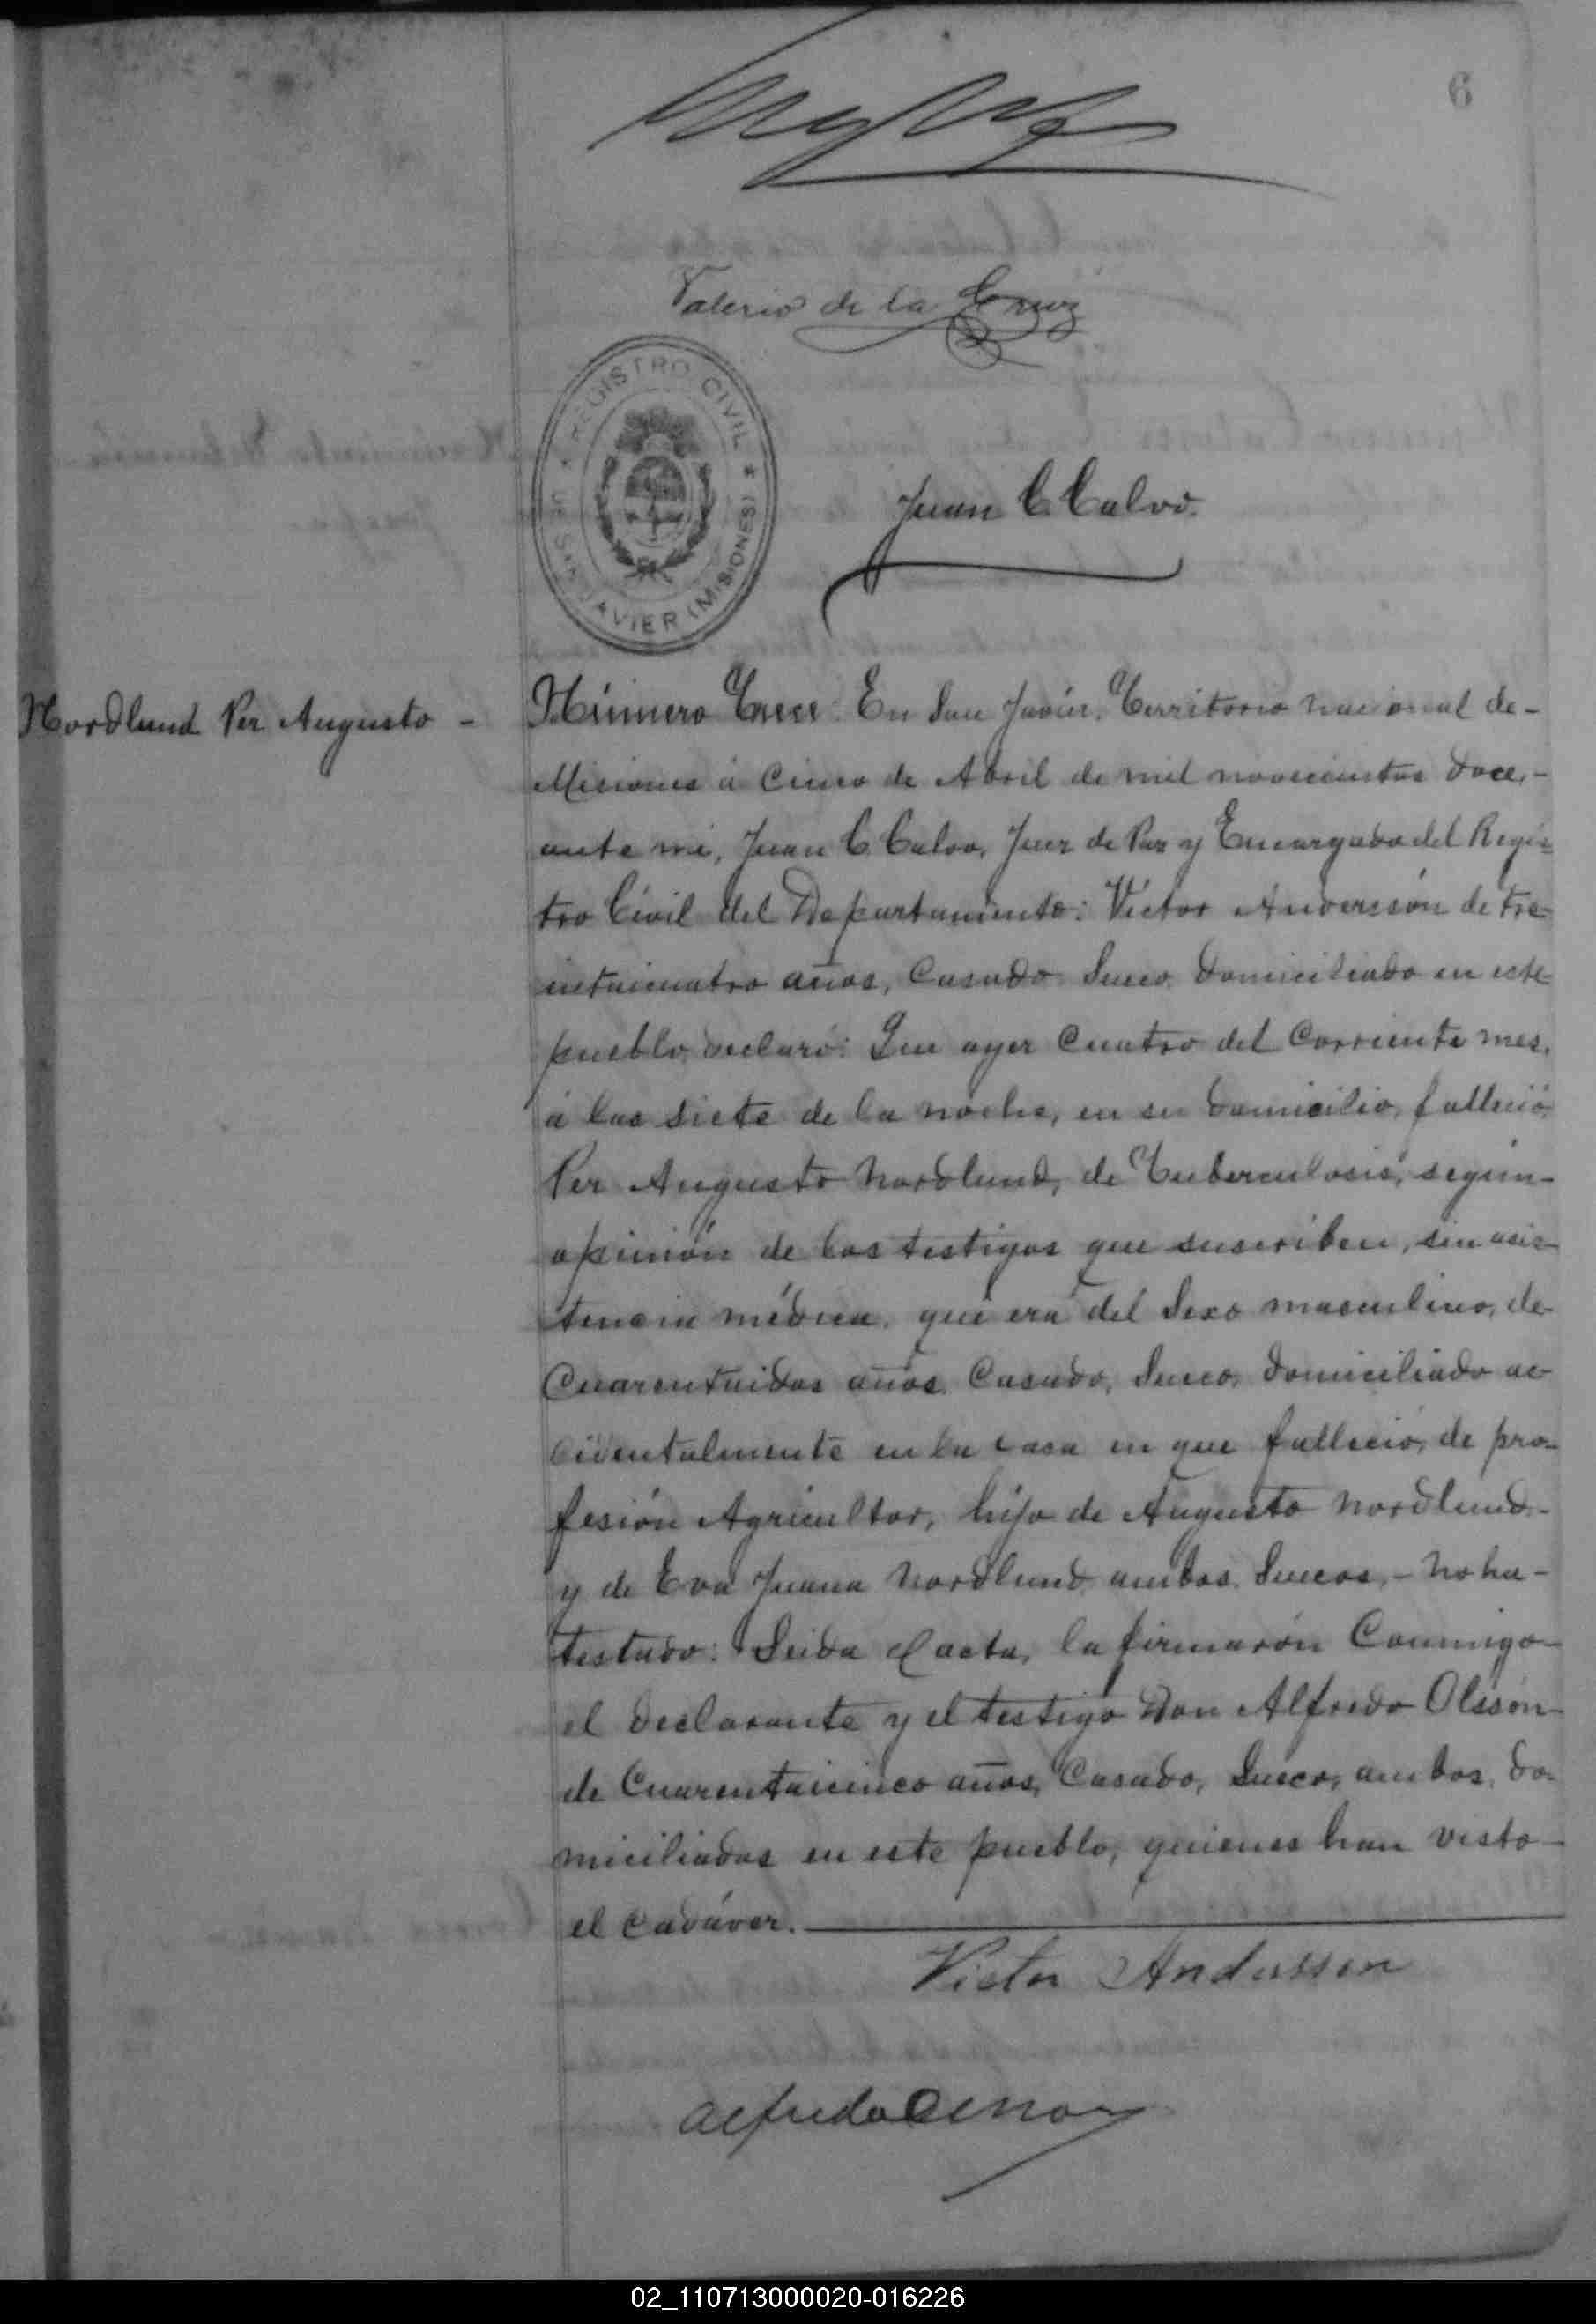 6
Valerio de la Cruz
REGISTRO CIVIL
DE SAN JAVIER (MISIONES)
Juan C. Calvo.
Nordlund Per Augusto -
Número Trece: En San Javier, Territorio nacional de-
Misiones á cinco de Abril de mil novecientos doce,-
ante mi, Juan C. Calvo, Juez de Paz y Encargado del Regis=
tro Civil del Departamento: Víctor Anderssón de tre-
intaicuatro años, Casado Sueco domiciliado en este-
pueblo, declaró: Que ayer Cuatro del Corriente mes,
á las siete de la noche, en su domicilio, falleció
Per Augusto Nordlund, de Tuberculosis, según-
opinión de los testigos que suscriben, sin asis-
tencia médica, que era del Sexo masculino, de-
Cuarentaidos años Casado, Sueco, domiciliado ac-
cidentalmente en la casa en que falleció, de pro-
fesión Agricultor, hijo de Augusto Nordlund-
y de Eva Juana Nordlund ambos Suecos,- no ha-
testado: Leida el acta, la firmarón Conmigo-
el declarante y el testigo Don Alfredo Olssón-
de Cuarentaicinco años, Casado, Sueco, ambos, do-
miciliados en este pueblo, quienes han visto-
el cadáver.
Victor Andersson
Alfredo Olsson
02_110713000020-016226